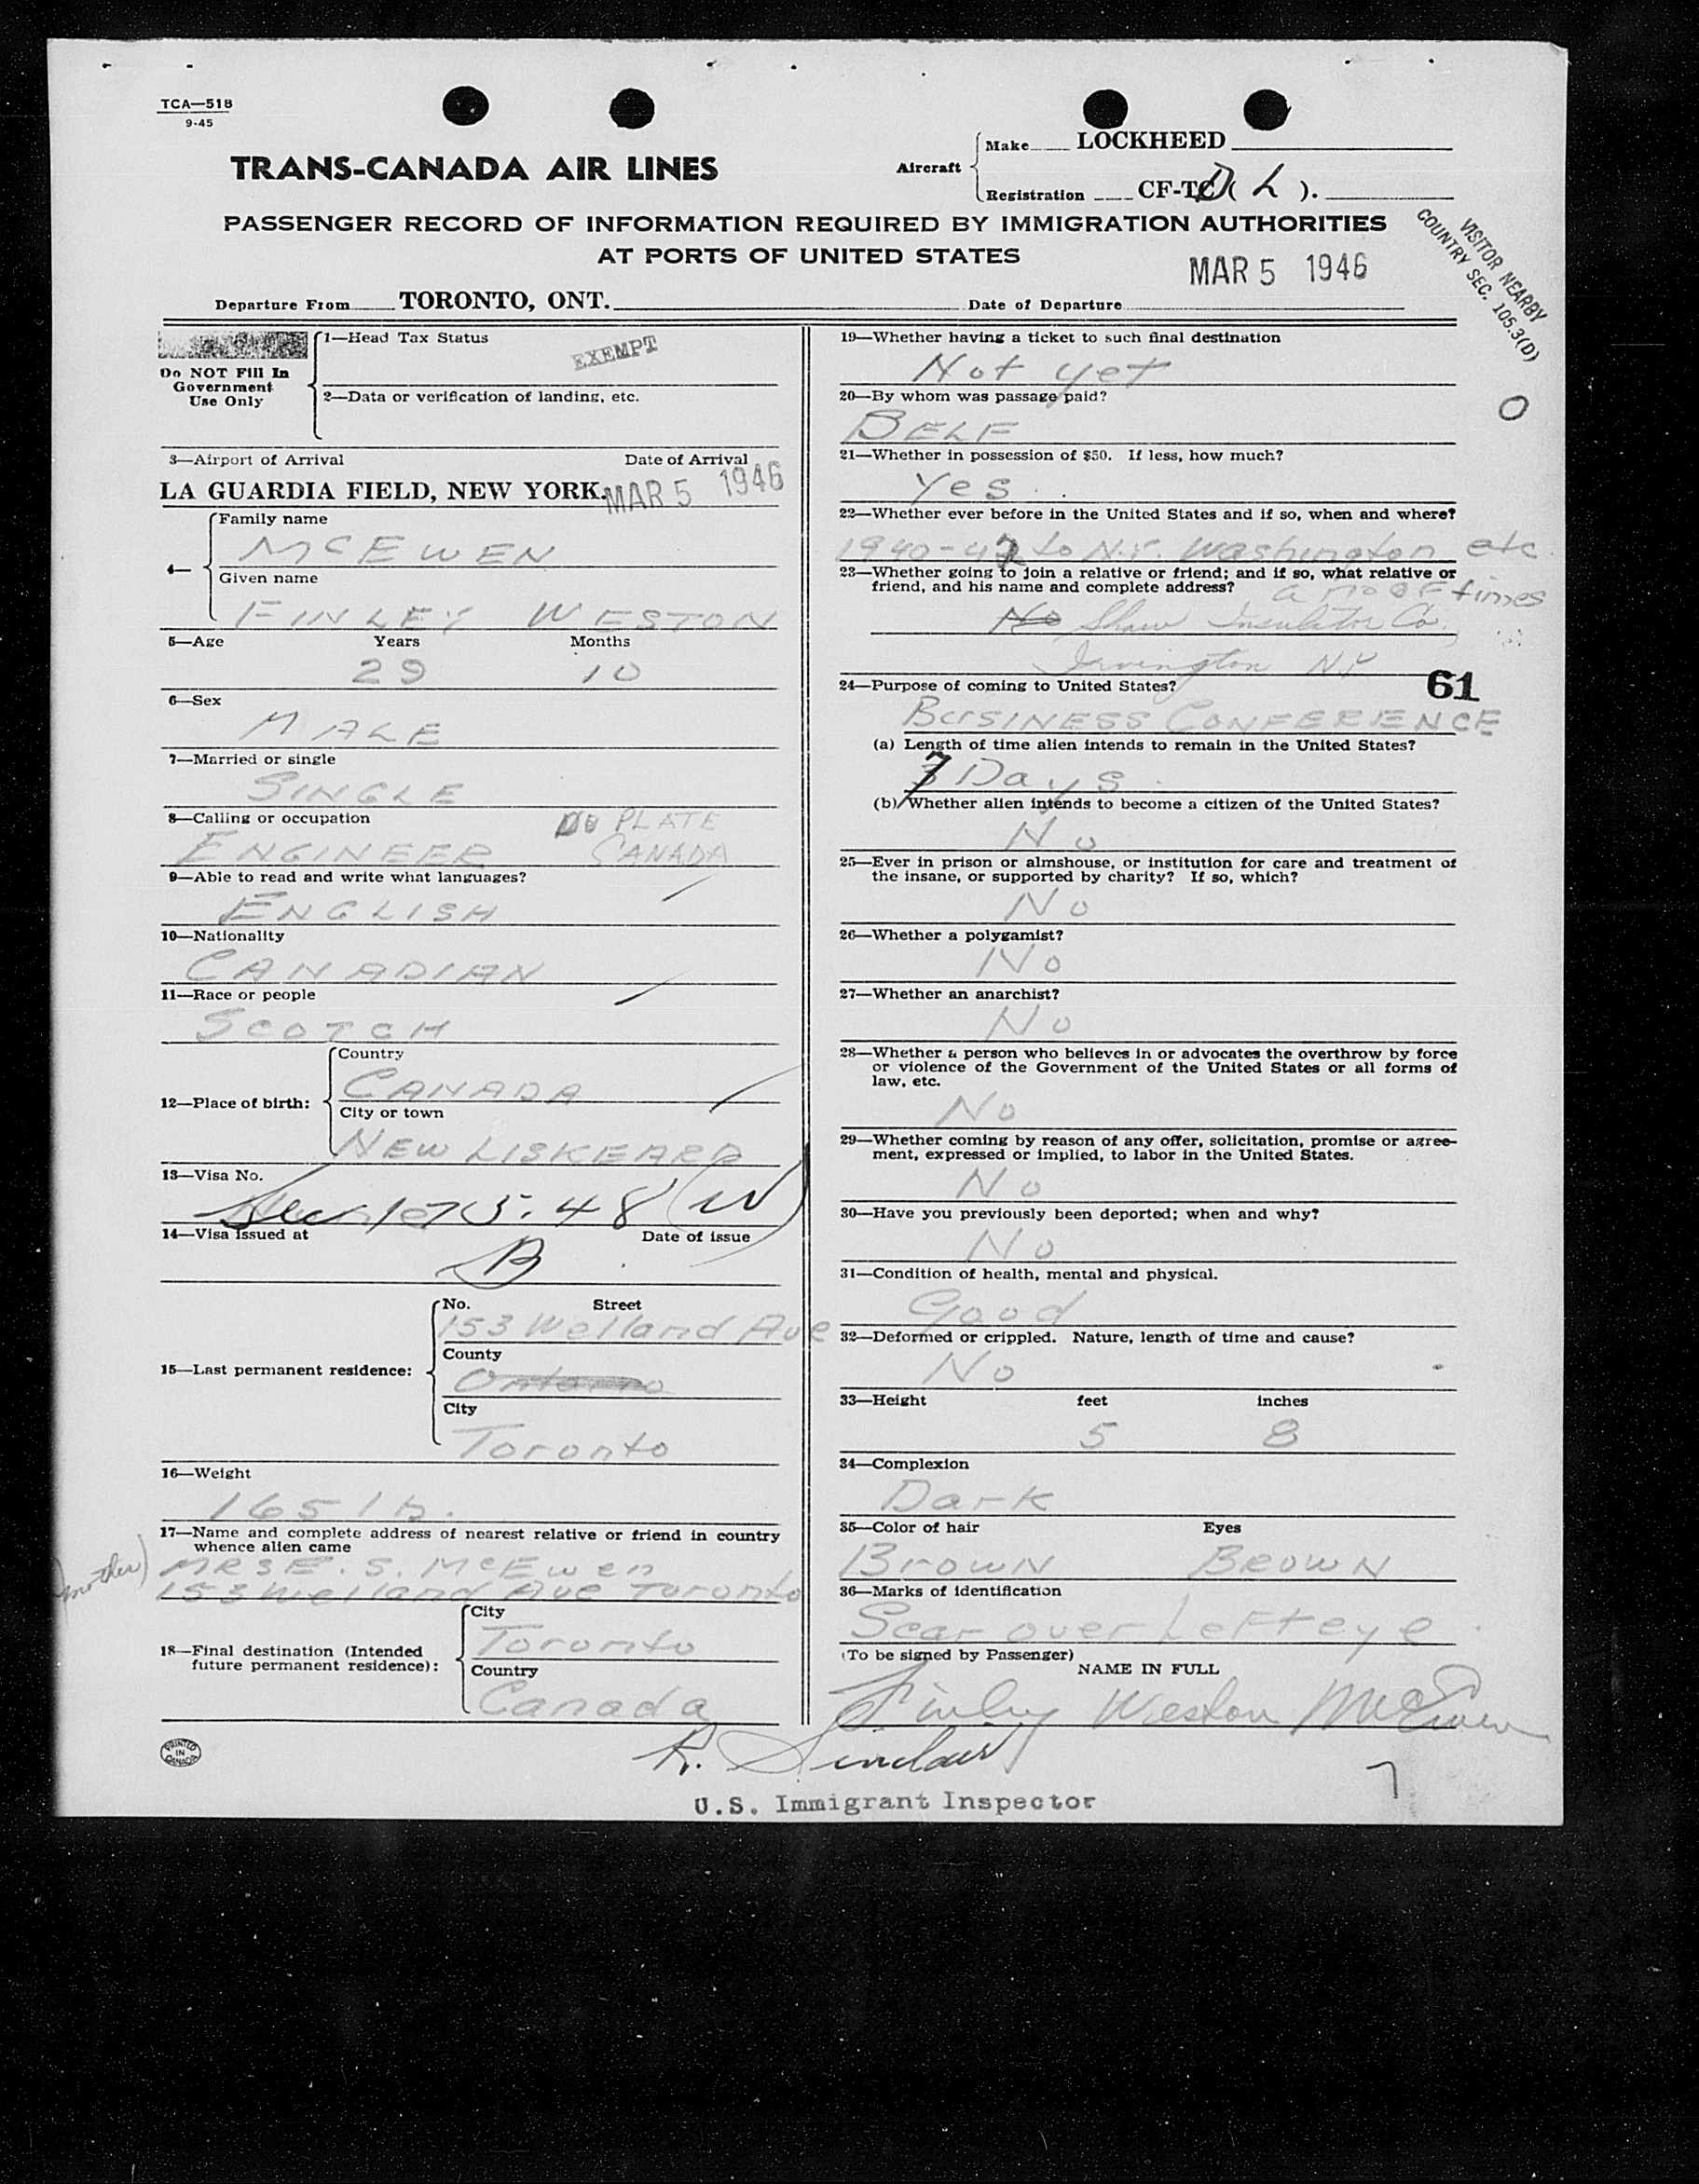 TCA—518
9-45
TRANS-CANADA AIR LINES
Aircraft
Make LOCKHEED
Registration CF-TC D ( L ).
PASSENGER RECORD OF INFORMATION REQUIRED BY IMMIGRATION AUTHORITIES
AT PORTS OF UNITED STATES
VISITOR NEARBY
COUNTRY SEC. 105.3(D)
MAR 5 1946
Departure From TORONTO, ONT. Date of Departure
Do NOT Fill In
Government
Use Only
1—Head Tax Status
EXEMPT
2—Data or verification of landing, etc.
3—Airport of Arrival Date of Arrival
LA GUARDIA FIELD, NEW YORK. MAR 5 1946
4—
Family name
McEWEN
Given name
FINLEY WESTON
5—Age Years Months
29 10
6—Sex
MALE
7—Married or single
SINGLE
8—Calling or occupation
PLATE
ENGINEER CANADA
9—Able to read and write what languages?
ENGLISH
10—Nationality
CANADIAN
11—Race or people
SCOTCH
12—Place of birth:
Country
CANADA
City or town
NEW LISKEARD
13—Visa No.
Sec 175.48 (W)
14—Visa issued at Date of issue
B
15—Last permanent residence:
No. Street
153 Welland Ave
County
Ontario
City
Toronto
16—Weight
165 lb.
17—Name and complete address of nearest relative or friend in country
whence alien came
(mother) MRS E. S. McEwen
153 Welland Ave Toronto
18—Final destination (Intended
future permanent residence):
City
Toronto
Country
Canada
19—Whether having a ticket to such final destination
Not yet
O
20—By whom was passage paid?
BELF
21—Whether in possession of $50. If less, how much?
Yes
22—Whether ever before in the United States and if so, when and where?
1940-42 to N.Y. Washington etc
a no of times
23—Whether going to join a relative or friend; and if so, what relative or
friend, and his name and complete address?
No Shaw Insulator Co.
Irvington NY
61
24—Purpose of coming to United States?
BUSINESS CONFERENCE
(a) Length of time alien intends to remain in the United States?
7 Days
(b) Whether alien intends to become a citizen of the United States?
No
25—Ever in prison or almshouse, or institution for care and treatment of
the insane, or supported by charity? If so, which?
No
26—Whether a polygamist?
No
27—Whether an anarchist?
No
28—Whether a person who believes in or advocates the overthrow by force
or violence of the Government of the United States or all forms of
law, etc.
No
29—Whether coming by reason of any offer, solicitation, promise or agree-
ment, expressed or implied, to labor in the United States.
No
30—Have you previously been deported; when and why?
No
31—Condition of health, mental and physical.
Good
32—Deformed or crippled. Nature, length of time and cause?
No
33—Height feet inches
5 8
34—Complexion
Dark
35—Color of hair Eyes
BROWN BROWN
36—Marks of identification
Scar over Left eye
(To be signed by Passenger)
NAME IN FULL
Finley Weston McEwen
PRINTED
IN
CANADA
R. Sinclair
U.S. Immigrant Inspector
7